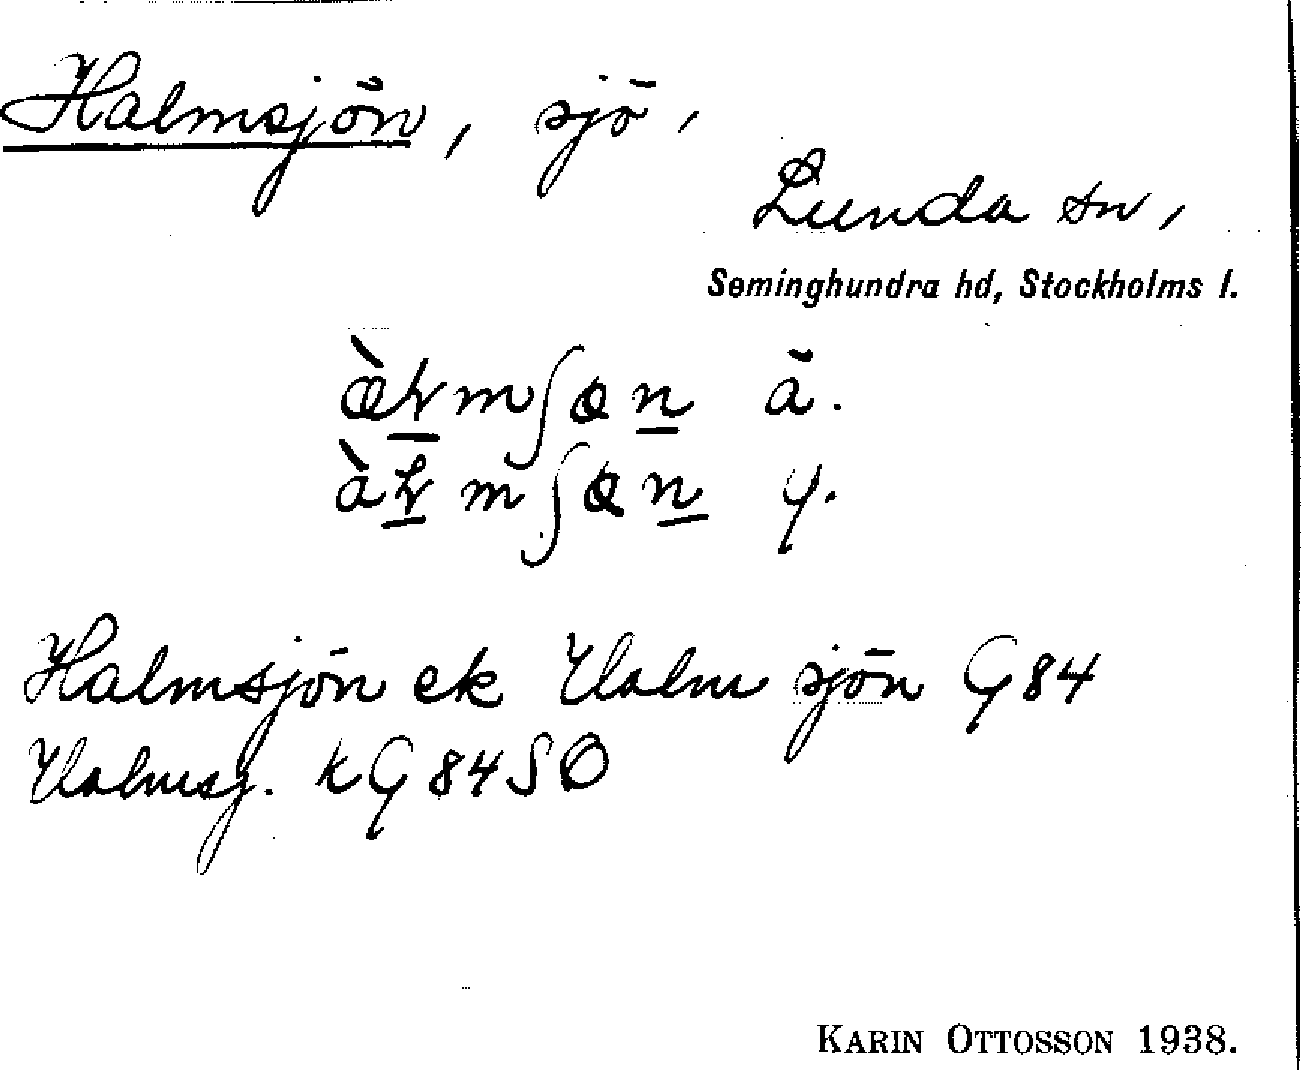 Halmsjön, sjö,
Lunda sn,
Seminghundra hd, Stockholms l.
ä.
y.
Halmsjön ek Ualm sjön G84
Ualmsj. kG84SO
KARIN OTTOSSON 1938.